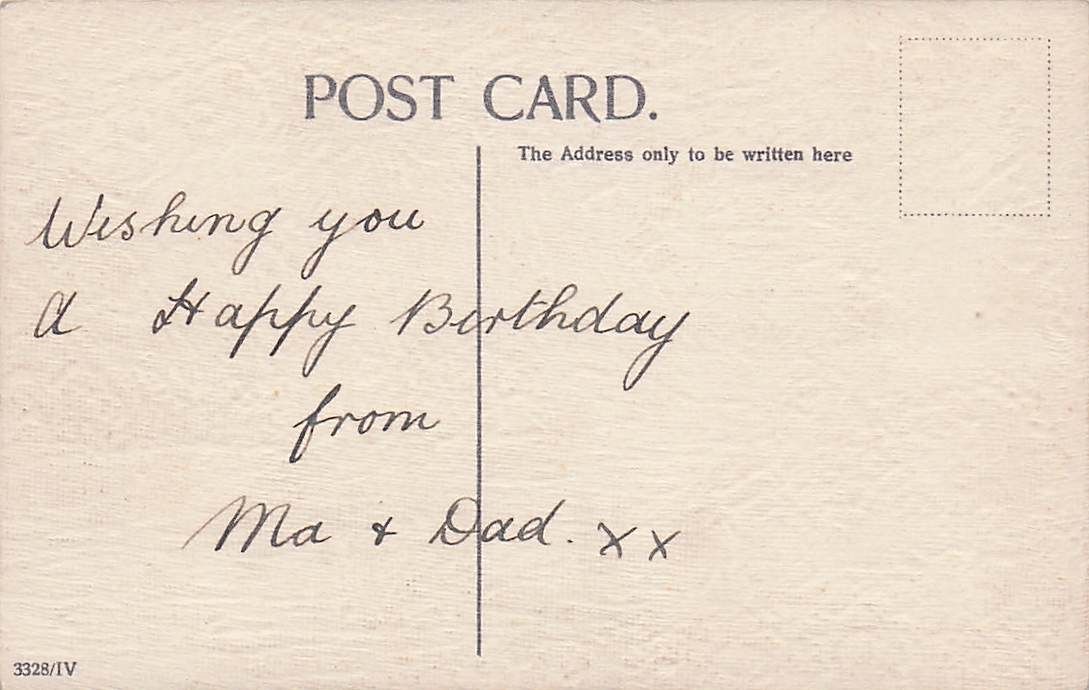 POST CARD.
The Address only to be written here
Wishing you
a Happy Birthday
from
Ma & Dad. xx
3328/IV